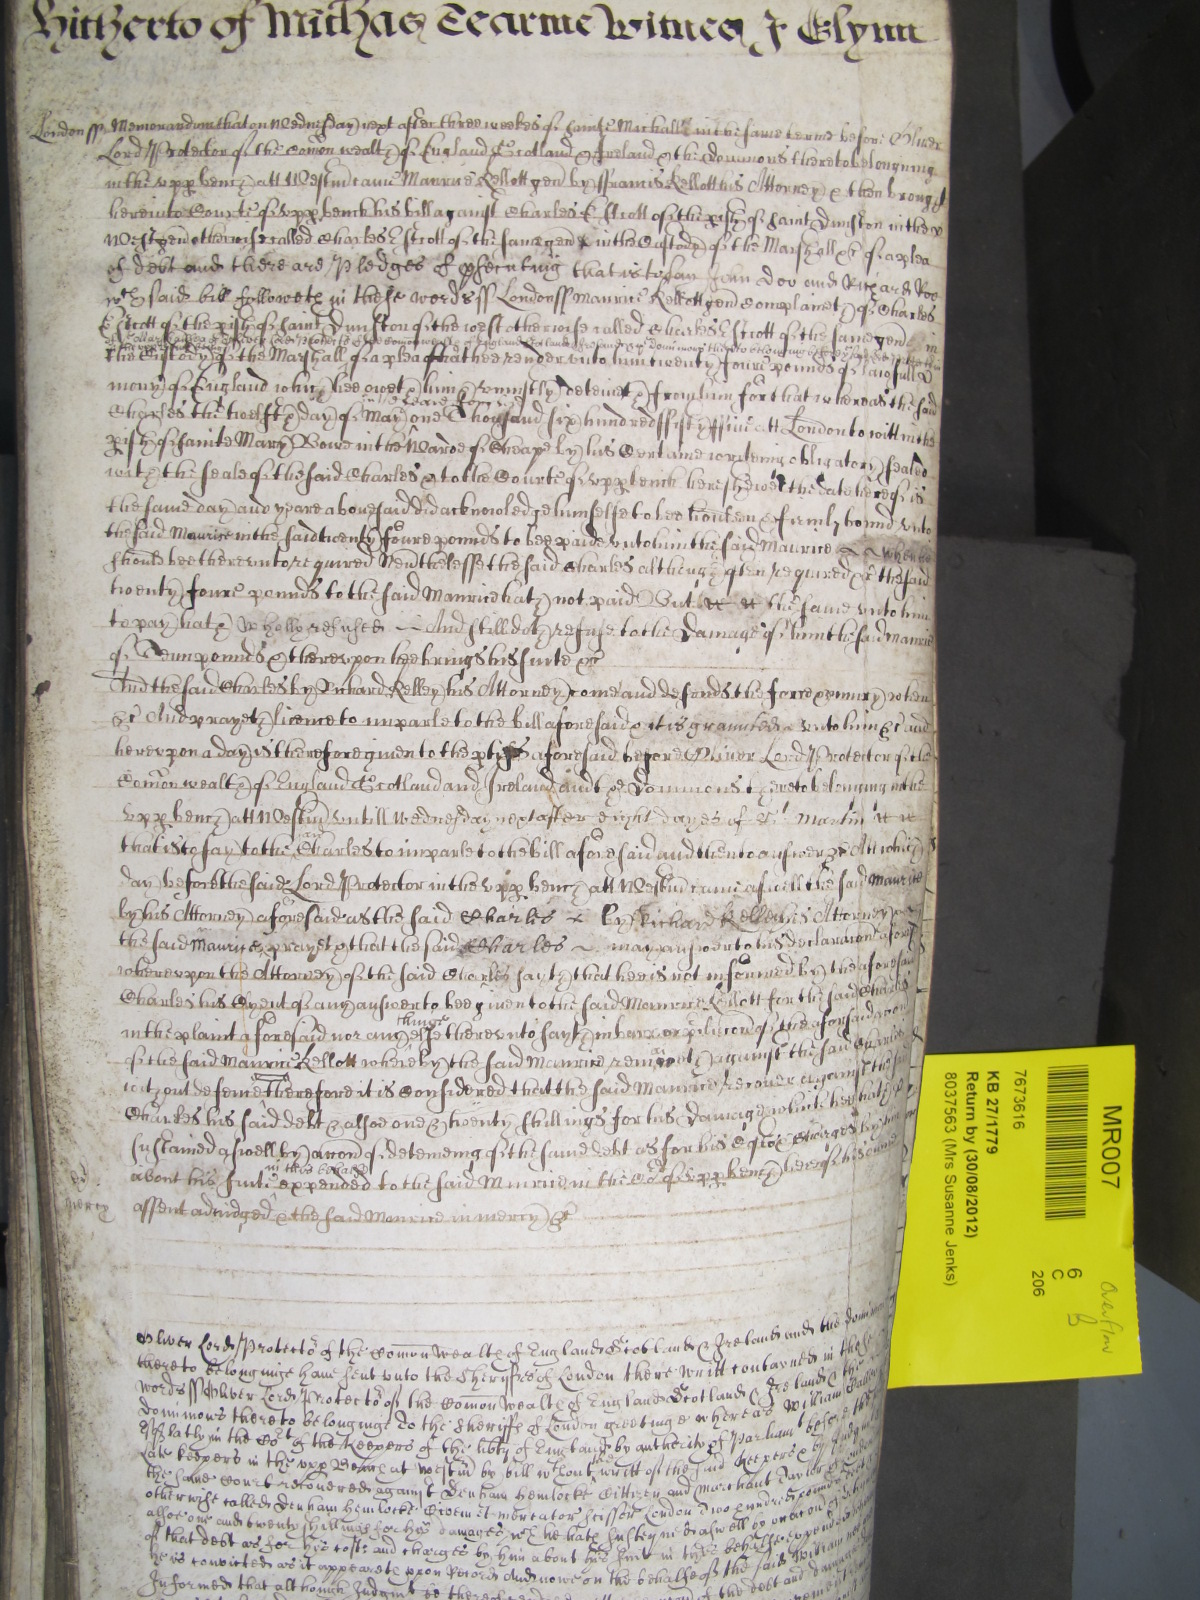 Hitherto of Michas Tearme Witnes J Glynn
London ss Memorandum that on Wednesday next after three weekes of Sainte Michaell in the same terme before Oliver
Lord Protector of the Comon wealth of England Scotland & Ireland & the Dominions thereto belonging
in the vpp bench att Westm came Maurice Kellott gen by Francis Kellott his Attorney & then brought
here into Courte of vpp bench his bill against Charles E Scott of the pish of Saint Dunston in the
West gen otherwise called Charles E Scott of the same gen in the Custody of the Marshall &c of a plea
of debt and there are pledges of psecuting that is to say John Doe and Richard Roe
wch said bill followeth in these words ss London ss Maurice Kellott gen complaineth of Charles
E Scott of the pish of Saint Dunston of the west otherwise called Charles E Scott of the same gen in
the Custody of the Marshall of a plea that hee render vnto him twenty foure pounds of lawfull
mony of England which hee oweth him & vniustly deteineth from him for that whereas the said
Charles the twelfth day of May one Thousand six hundred fifty ffive att London to witt in the
pish of Sainte Mary Bowe in the Warde of Cheape by his Certaine writeing obligatory sealed
with the seale of the said Charles & to the Courte of vpp bench here shewed the date hereof is
the same day and yeare abovesaid did acknowledge himselfe to bee houlden & firmly bound vnto
the said Maurice in the said twenty foure pounds to bee paid vnto him the said Maurice when
should bee therevnto required Neverthelesse the said Charles although often required &c the said
twenty foure pounds to the said Maurice hath not paid But the same vnto him
to pay hath wholly refused And still doth refuse to the Damage of him the said Maurice
of Tenn pounds & therevpon hee brings his suite &c
And the said Charles by Richard Kelley his Attorney come and defends the force & iniury when
&c And prayeth licence to imparle to the bill aforesaid & it is graunted vnto him &c and
herevpon a day is therefore given to the pties aforesaid before Oliver Lord Protector of the
Comon wealth of England Scotland and Ireland and the Dominions thereto belonging in the
vpp bench att Westm vntill Wednesday next after eight dayes of St Martin
that is to say to the said Charles to imparle to the bill aforesaid and then to answer &c Att which
day before the said Lord Protector in the vpp bench att Westm came aswell the said Maurice
by his Attorney aforesaid as the said Charles by Richard Kelley his Attorney
the said Maurice prayeth that the said Charles may answer to his declaracon
wherevpon the Attorney of the said Charles sayth that hee is not informed by the aforesaid
Charles his Clyent of any answer to bee given to the said Maurice Kellott for the said Charles
in the plaint aforesaid nor any thinge else therevnto sayth in barr or of the aforesaid accon
of the said Maurice Kellott whereby the said Maurice remaineth against the said Charles
without defence Therefore it is Considered that the said Maurice recover against the said
Charles his said debt & alsoe one & twenty shillings for his Damages which hee hath
sustained aswell by accon of deteineing of the same debt as for his Costs & Charges by him
about his suite in this behalfe expended to the said Maurice in the Co of vpp bench here of his
assent adiudged & the said Maurice in mercy &c
mercy
Oliver Lord Protector of the Comon Wealth of England Scotland & Ireland and the dominions
thereto belonginge have sent vnto the Sheriffes of London there writt contayned in these
words ss Oliver Lord Protector of the Comon Wealth of England Scotland & Ireland & the
dominions thereto belonginge To the Sheriffs of London greetinge whereas William
lately in the Cort of the Keepers of the libty of England by authority of Parliamt before the
late keepers in the vpp Bench at Westm by bill without writt of the said Keepers & by Judgmt
the same Court recovered against Denham Hemlocke Citizen and Merchant Taylor of London
otherwise called Denham Hemlocke Civem et mercator scissor London
alsoe one and twenty shillings for his damages wch he hath susteyned aswell by
of that debt as for his costs and charges by him about his suit in this behalfe expended
he is convicted as it appeareth vpon Record And now on the behalfe of the said William
Informed that although Judgmt be thereof
MR007
7673616
KB 27/1779
Return by (30/08/2012)
8037563 (Mrs Susanne Jenks)
6
C
206
overflow
B